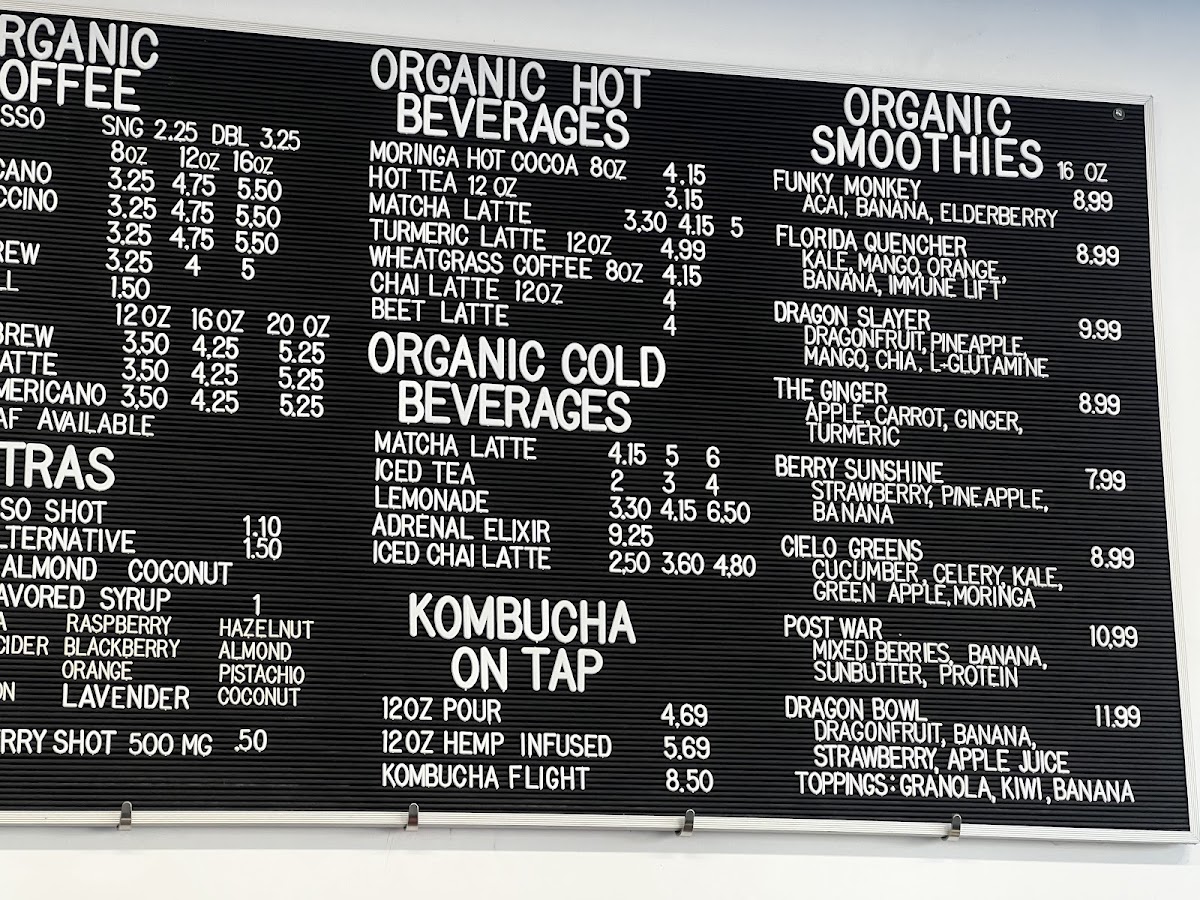 RGANIC
OFFEE
SSO SNG 2.25 DBL 3.25
8OZ 12OZ 16OZ
CANO 3.25 4.75 5.50
CCINO 3.25 4.75 5.50
3.25 4.75 5.50
REW 3.25 4 5
LL 1.50
12OZ 16OZ 20 OZ
BREW 3.50 4.25 5.25
ATTE 3.50 4.25 5.25
MERICANO 3.50 4.25 5.25
AF AVAILABLE
TRAS
SO SHOT 1.10
LTERNATIVE 1.50
ALMOND COCONUT
AVORED SYRUP 1
A RASPBERRY HAZELNUT
CIDER BLACKBERRY ALMOND
ORANGE PISTACHIO
ON LAVENDER COCONUT
RRY SHOT 500 MG .50
ORGANIC HOT
BEVERAGES
MORINGA HOT COCOA 8OZ 4.15
HOT TEA 12 OZ 3.15
MATCHA LATTE 3.30 4.15 5
TURMERIC LATTE 12OZ 4.99
WHEATGRASS COFFEE 8OZ 4.15
CHAI LATTE 12OZ 4
BEET LATTE 4
ORGANIC COLD
BEVERAGES
MATCHA LATTE 4.15 5 6
ICED TEA 2 3 4
LEMONADE 3.30 4.15 6.50
ADRENAL ELIXIR 9.25
ICED CHAI LATTE 2,50 3,60 4,80
KOMBUCHA
ON TAP
12OZ POUR 4.69
12OZ HEMP INFUSED 5.69
KOMBUCHA FLIGHT 8.50
ORGANIC
SMOOTHIES 16 OZ
FUNKY MONKEY 8.99
ACAI, BANANA, ELDERBERRY
FLORIDA QUENCHER 8.99
KALE, MANGO, ORANGE,
BANANA, IMMUNE LIFT
DRAGON SLAYER 9.99
DRAGONFRUIT, PINEAPPLE,
MANGO, CHIA, L-GLUTAMINE
THE GINGER 8.99
APPLE, CARROT, GINGER,
TURMERIC
BERRY SUNSHINE 7.99
STRAWBERRY, PINEAPPLE,
BANANA
CIELO GREENS 8.99
CUCUMBER, CELERY, KALE,
GREEN APPLE, MORINGA
POST WAR 10,99
MIXED BERRIES, BANANA,
SUNBUTTER, PROTEIN
DRAGON BOWL 11.99
DRAGONFRUIT, BANANA,
STRAWBERRY, APPLE JUICE
TOPPINGS: GRANOLA, KIWI, BANANA